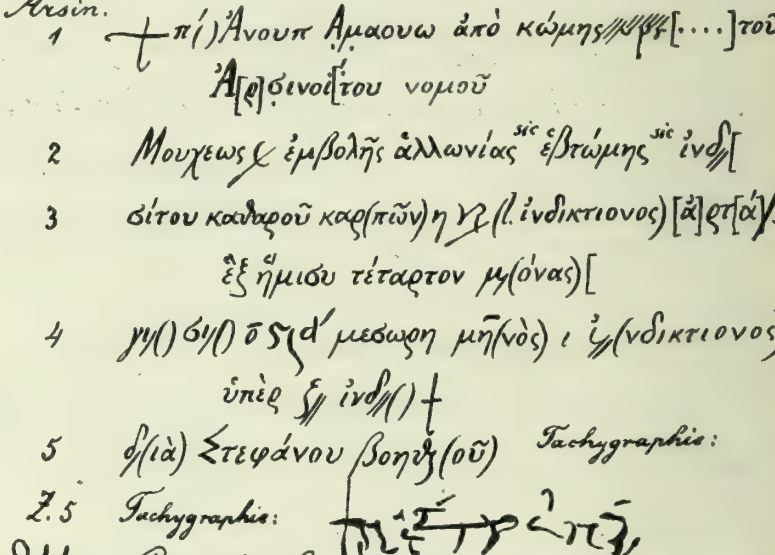 Arsin.
1 π() Ἀνουπ Ἀμαουω ἀπὸ κώμης [....] τοῦ
Ἀ[ρ]σινοί[του νομοῦ
2 Μουχεως ἐμβολῆς ἀλλωνίας sic ἑβτώμης sic ἰνδ//[
3 σίτου καθαροῦ καρ(πῶν) η (l. ἰνδικτιονος) [ἀ]ρτ[ά]
ἓξ ἥμισυ τέταρτον μ(όνας)[
4 μεσωρη μη(νὸς) ι ἰ(νδικτιονος)
ὑπὲρ ἰνδ//() +
5 δ(ιὰ) Στεφάνου βοηθ(οῦ) Tachygraphie:
Z.5 Tachygraphie: